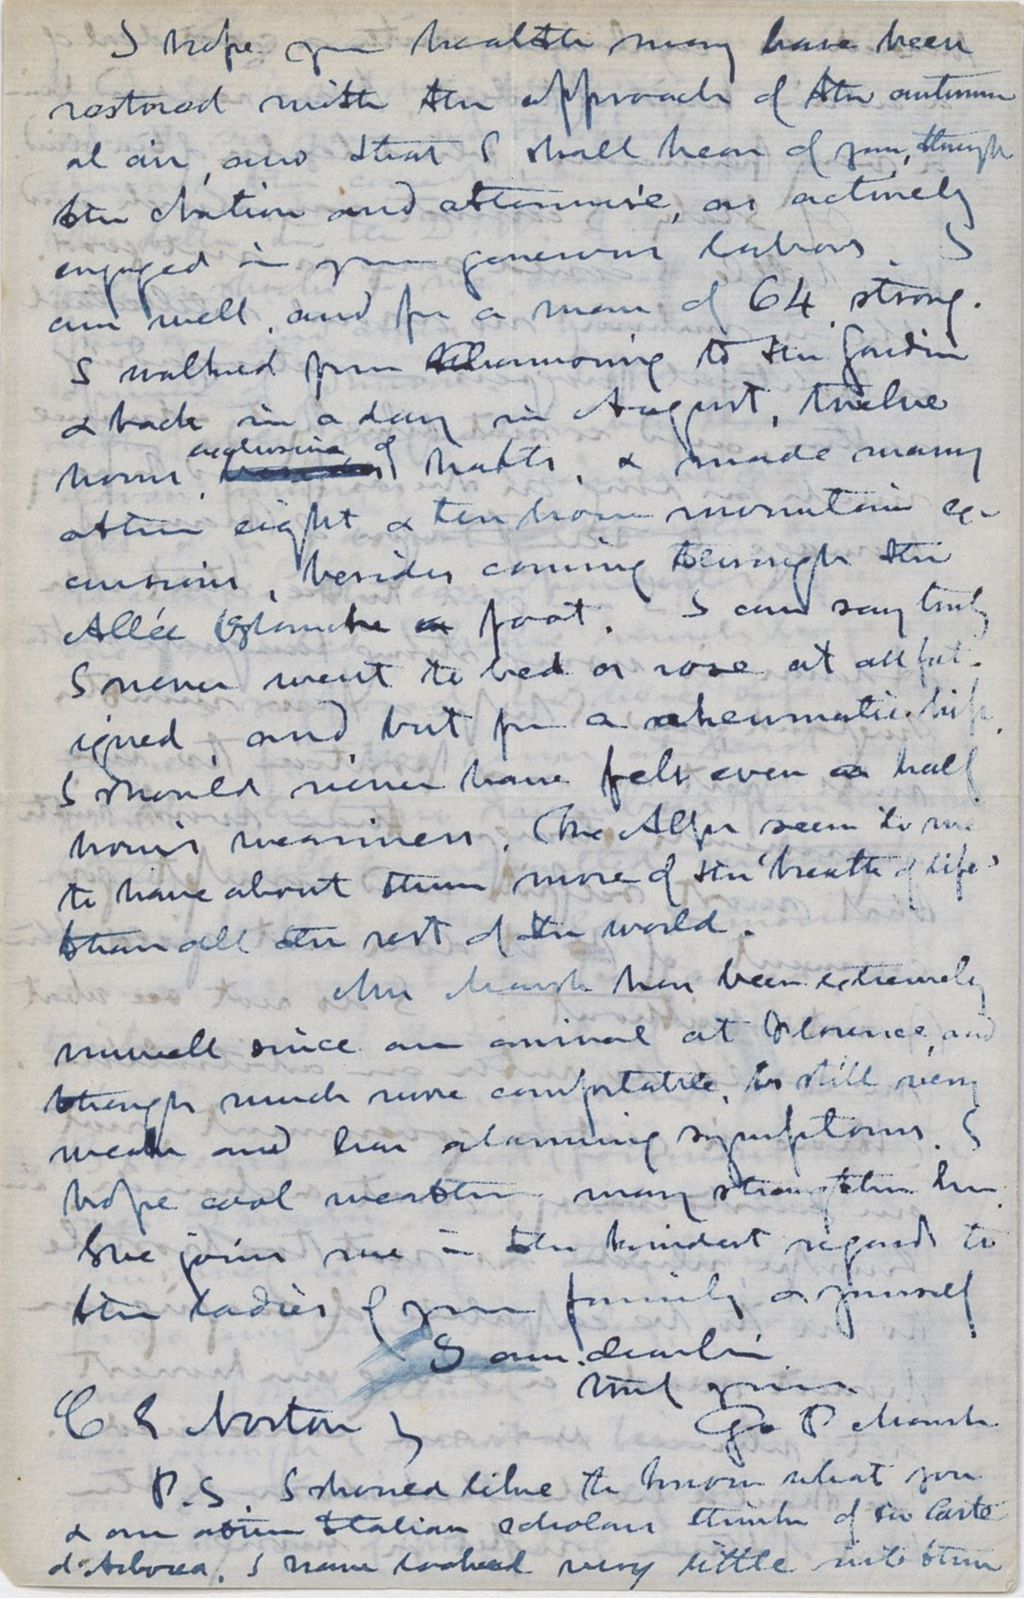 I hope your health may have been
restored with the approach of the autumn
al air, and that I shall hear of you, through
the Nation and otherwise, as actively
engaged in your generous labors. I
am well, and for a man of 64, strong.
I walked from Chamouny to the Jardin
& back in a day in August, twelve
hours, exclusive of halts, & made many
other eight & ten hour mountain ex-
cursions, besides coming through the
Allée Blanche on foot. I can say truly
I never went to bed or rose at all fat-
igued, and but for a rheumatic hip,
I should never have felt even a half
hour's weariness. The Alps seem to me
to have about them more of the 'breath of life'
than all the rest of the world.
Mrs Marsh has been extremely
unwell since our arrival at Florence, and
though much more comfortable, is still very
weak and has alarming symptoms. I
hope cool weather may strengthen her.
She joins me in the kindest regards to
the ladies of your family & yourself
I am, dear Sir
truly yours
C E Norton Geo P Marsh
P.S. I should like to know what you
& our other Italian scholars think of the Carte
d'Arborea. I have looked very little into them